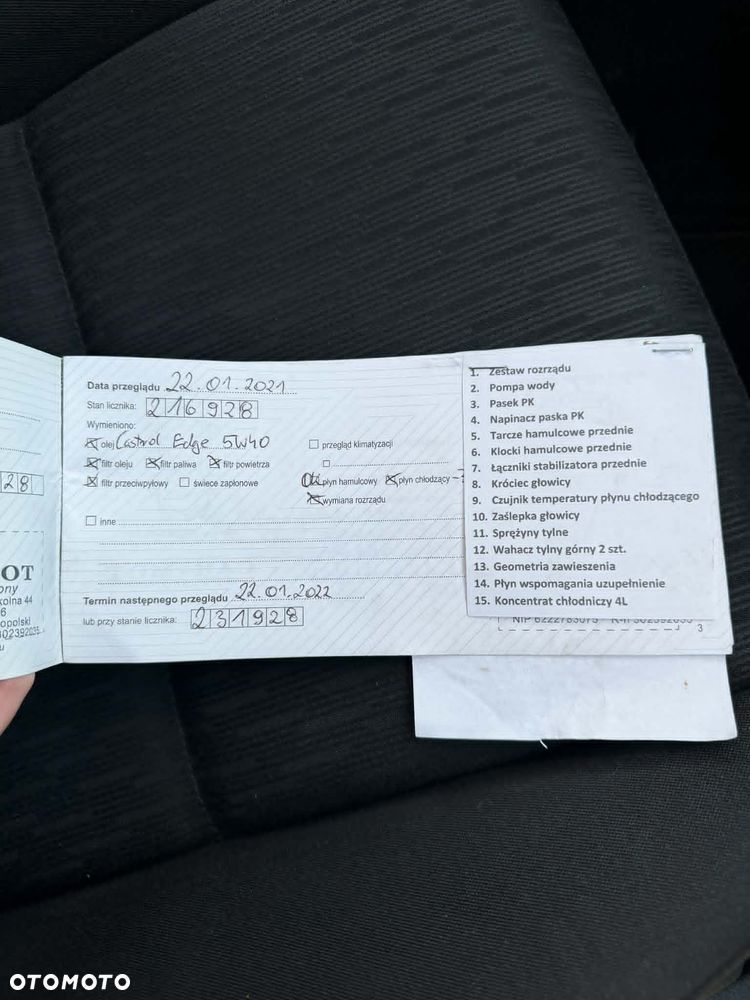 28
OT
ony
kolna 44
6
opolski
302392035
u
Data przeglądu 22.01.2021
Stan licznika: 216928
Wymieniono:
olej Castrol Edge 5W40
przegląd klimatyzacji
filtr oleju filtr paliwa filtr powietrza
filtr przeciwpyłowy świece zapłonowe
płyn hamulcowy płyn chłodzący
wymiana rozrządu
inne
Termin następnego przeglądu 22.01.2022
lub przy stanie licznika: 231928
1. Zestaw rozrządu
2. Pompa wody
3. Pasek PK
4. Napinacz paska PK
5. Tarcze hamulcowe przednie
6. Klocki hamulcowe przednie
7. Łączniki stabilizatora przednie
8. Króciec głowicy
9. Czujnik temperatury płynu chłodzącego
10. Zaślepka głowicy
11. Sprężyny tylne
12. Wahacz tylny górny 2 szt.
13. Geometria zawieszenia
14. Płyn wspomagania uzupełnienie
15. Koncentrat chłodniczy 4L
3
OTOMOTO